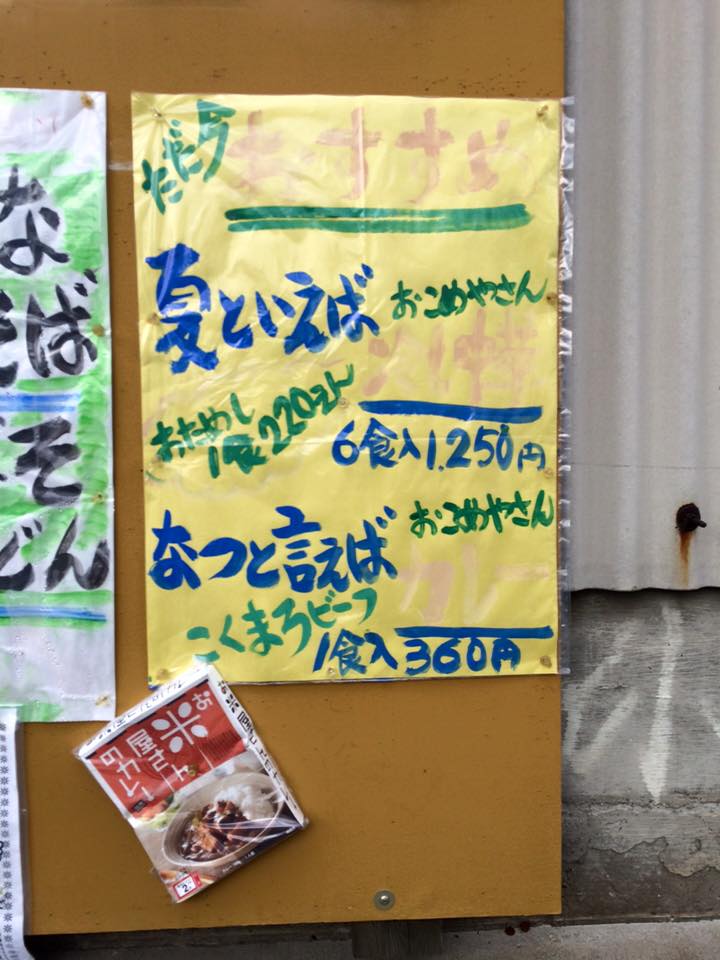 な
そば
そ
どん
ただ今
おすすめ
夏といえば
おこめやさん
おためし
1食220えん
6食入1,250円
なつと言えば
おこめやさん
カレー
こくまろビーフ
1食入360円
お米
屋さん
のカレー